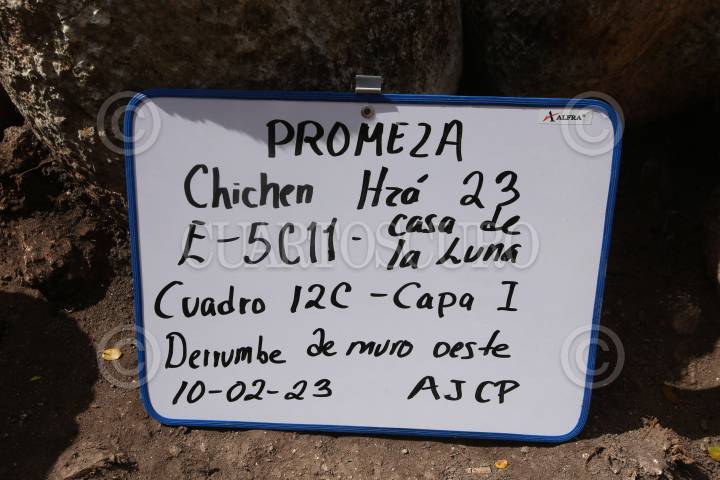 ALFRA
PROMEZA
Chichen Itzá 23
E-5C11- casa de
la Luna
Cuadro 12C - Capa I
Derrumbe de muro oeste
10-02-23 AJCP
CUARTOSCURO